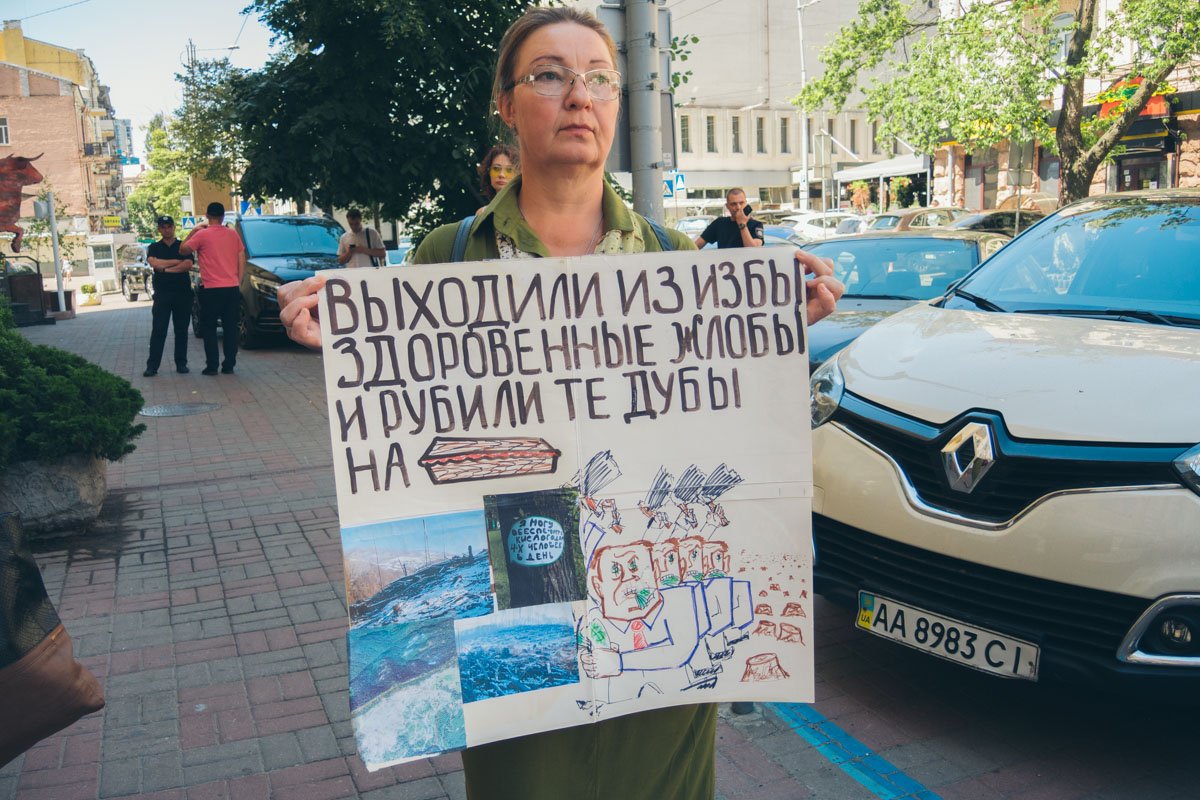 ВЫХОДИЛИ ИЗ ИЗБЫ
ЗДОРОВЕННЫЕ ЖЛОБЫ
И РУБИЛИ ТЕ ДУБЫ
НА
Я МОГУ
ОБЕСПЕЧИТЬ
КИСЛОРОДОМ
4-Х ЧЕЛОВЕК
В ДЕНЬ
UA
AA 8983 CI